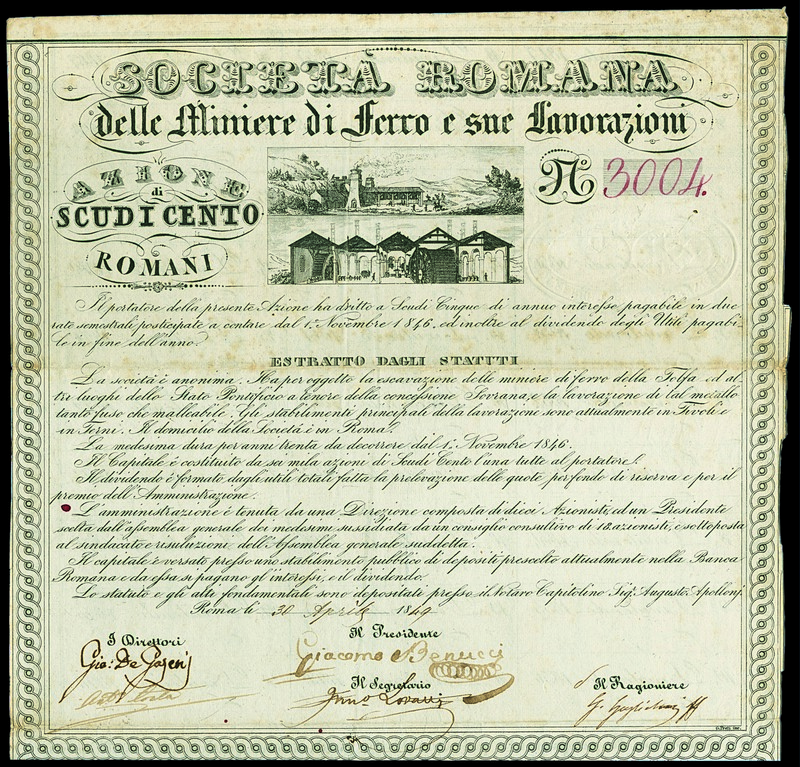 SOCIETÀ ROMANA
delle Miniere di Ferro e sue Lavorazioni
AZIONE
di
SCUDI CENTO
ROMANI
N.º 3004.
Il portatore della presente Azione ha dritto a Scudi Cinque di annuo interesse pagabile in due
rate semestrali posticipate a contare dal 1.º Novembre 1846, ed inoltre al dividendo degli Utili pagabi-
le in fine dell'anno.
ESTRATTO DAGLI STATUTI
La società è anonima. Ha per oggetto la escavazione delle miniere di ferro della Tolfa ed al-
tri luoghi dello Stato Pontificio a tenore della concessione Sovrana, e la lavorazione di tal metallo
tanto fuso che malleabile. Gli stabilimenti principali della lavorazione sono attualmente in Tivoli e
in Terni. Il domicilio della Società è in Roma.
La medesima dura per anni trenta da decorrere dal 1.º Novembre 1846.
Il Capitale è costituito da sei mila azioni di Scudi Cento l'una tutte al portatore.
Il dividendo è formato dagli utili totali fatta la prelevazione delle quote per fondo di riserva e per il
premio dell'Amministrazione.
L'amministrazione è tenuta da una Direzione composta di dieci Azionisti, ed un Presidente
scelta dall'assemblea generale dei medesimi sussidiata da un consiglio consultivo di 18. azionisti, e sottoposta
al sindacato e risoluzioni dell'Assemblea generale suddetta.
Il capitale è versato presso uno stabilimento pubblico di depositi prescelto attualmente nella Banca
Romana e da essa si pagano gl'interessi, e il dividendo.
Lo statuto e gli atti fondamentali sono depositati presso il Notaro Capitolino Sig. Augusto Apollonj.
Roma li 30 Aprile 1849
I Direttori
Il Presidente
Gio: De
Giacomo Benucci
Il Segretario
Il Ragioniere